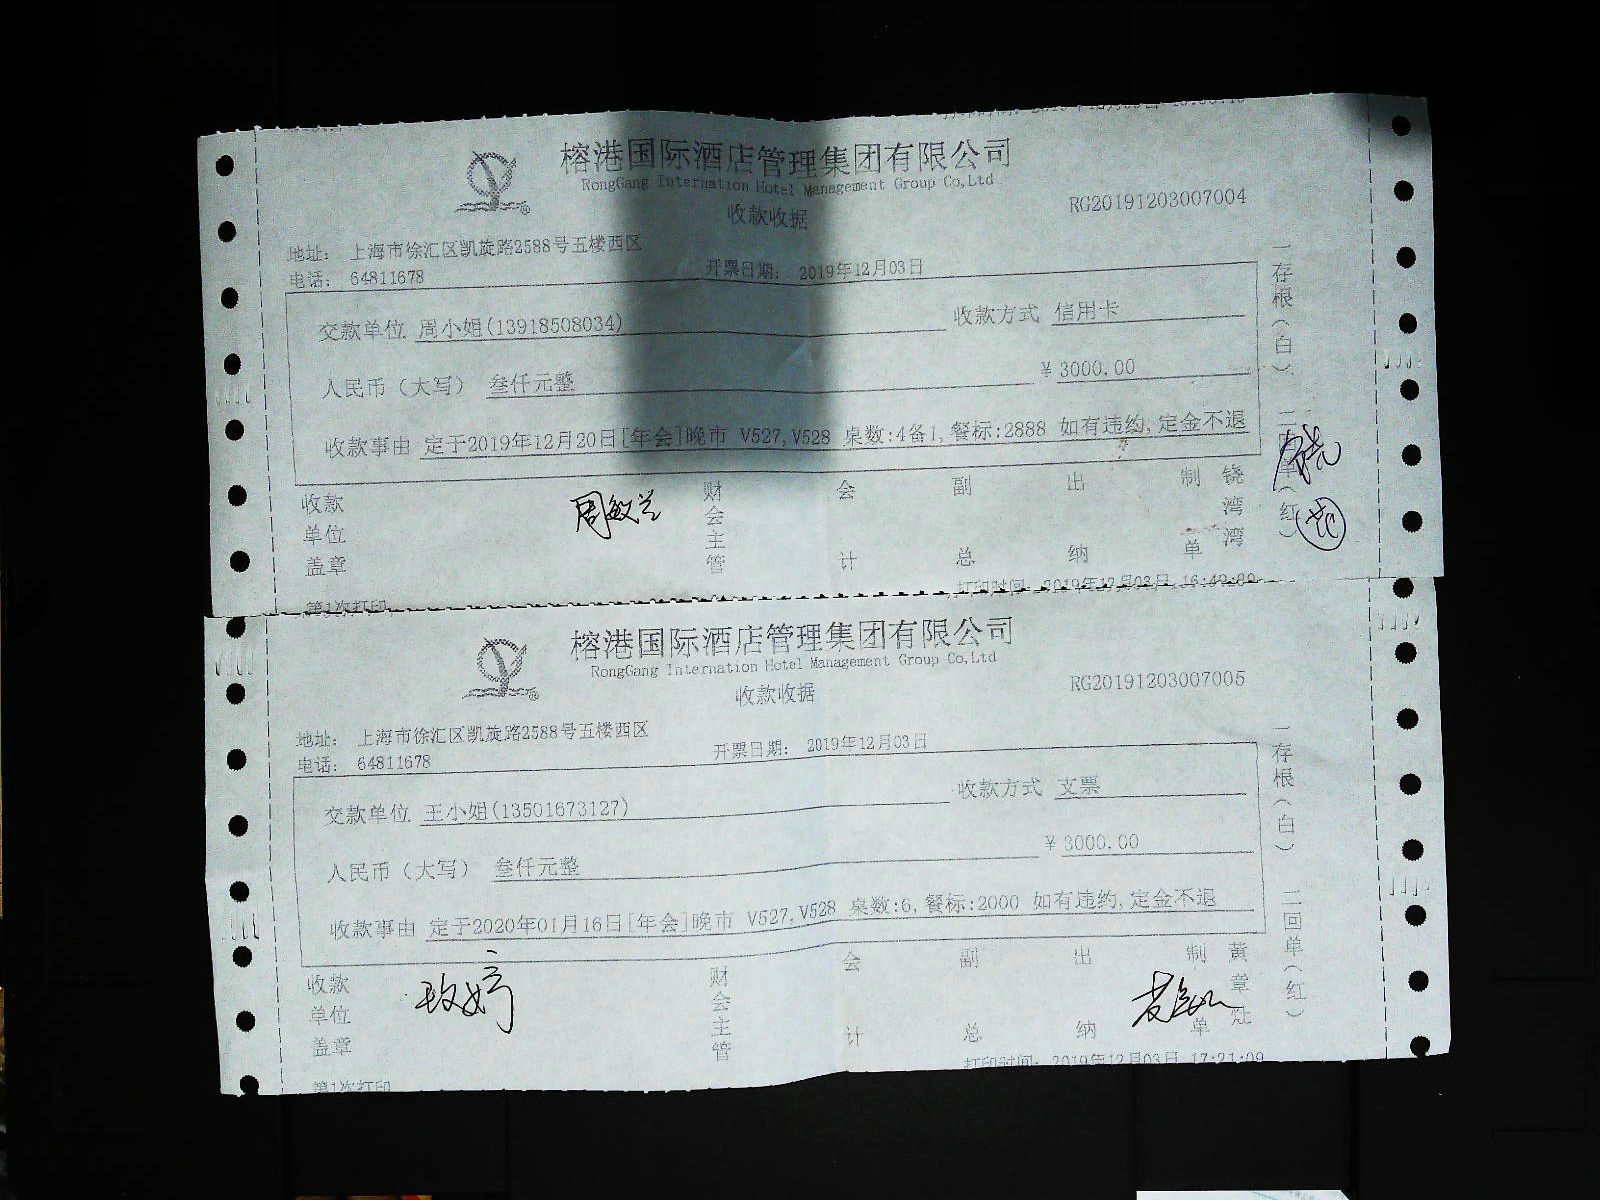 榕港国际酒店管理集团有限公司
RongGang Internation Hotel Management Group Co,Ltd
收款收据
RG20191203007004
地址： 上海市徐汇区凯旋路2588号五楼西区
电话： 64811678
开票日期： 2019年12月03日
交款单位 周小姐(13918508034) 收款方式 信用卡
人民币（大写） 叁仟元整 ￥3000.00
收款事由 定于2019年12月20日[年会]晚市 V527,V528 桌数:4备1,餐标:2888 如有违约,定金不退
一存根（白） 二回单（红）
收款单位盖章 周敏兰 财会主管 会计 副总 出纳 制单 饶湾湾
第1次打印 打印时间： 2019年12月03日
榕港国际酒店管理集团有限公司
RongGang Internation Hotel Management Group Co,Ltd
收款收据
RG20191203007005
地址： 上海市徐汇区凯旋路2588号五楼西区
电话： 64811678
开票日期： 2019年12月03日
交款单位 王小姐(13501673127) 收款方式 支票
人民币（大写） 叁仟元整 ￥3000.00
收款事由 定于2020年01月16日[年会]晚市 V527,V528 桌数:6,餐标:2000 如有违约,定金不退
一存根（白） 二回单（红）
收款单位盖章 财会主管 会计 副总 出纳 制单 黄章灶
第1次打印 打印时间： 2019年12月03日 17:21:09